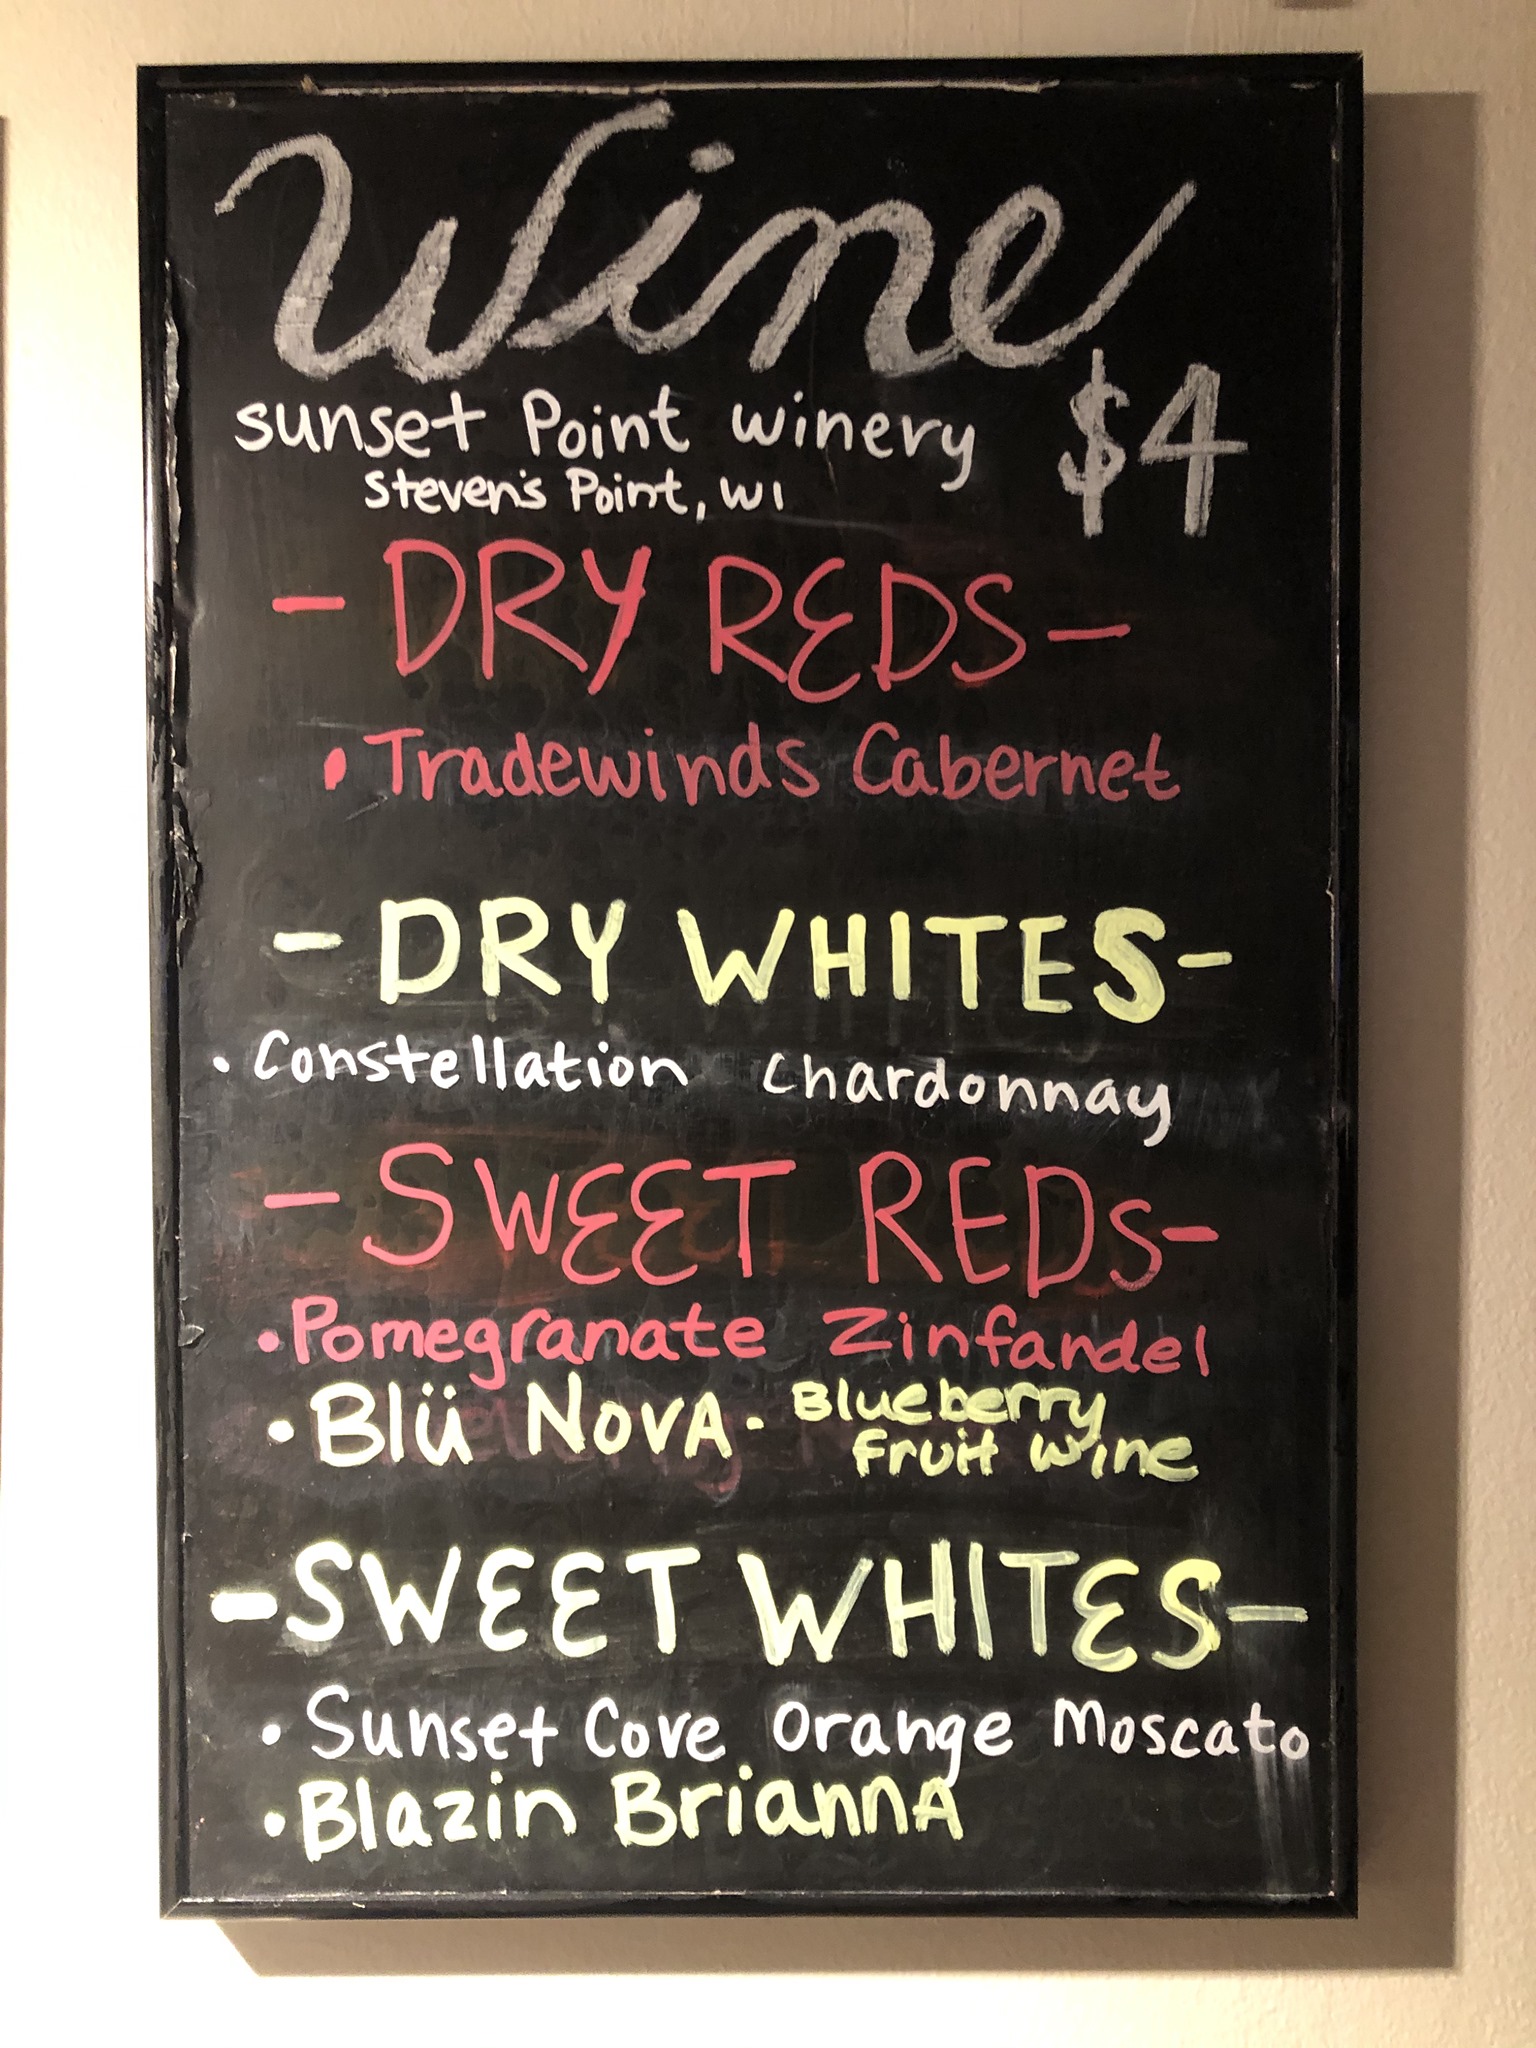 Wine
$4
sunset Point winery
Steven's Point, WI
- DRY REDS -
• Tradewinds Cabernet
- DRY WHITES -
• Constellation Chardonnay
- SWEET REDS -
• Pomegranate Zinfandel
• Blü NovA - Blueberry
Fruit Wine
- SWEET WHITES -
• Sunset Cove Orange Moscato
• Blazin BriannA